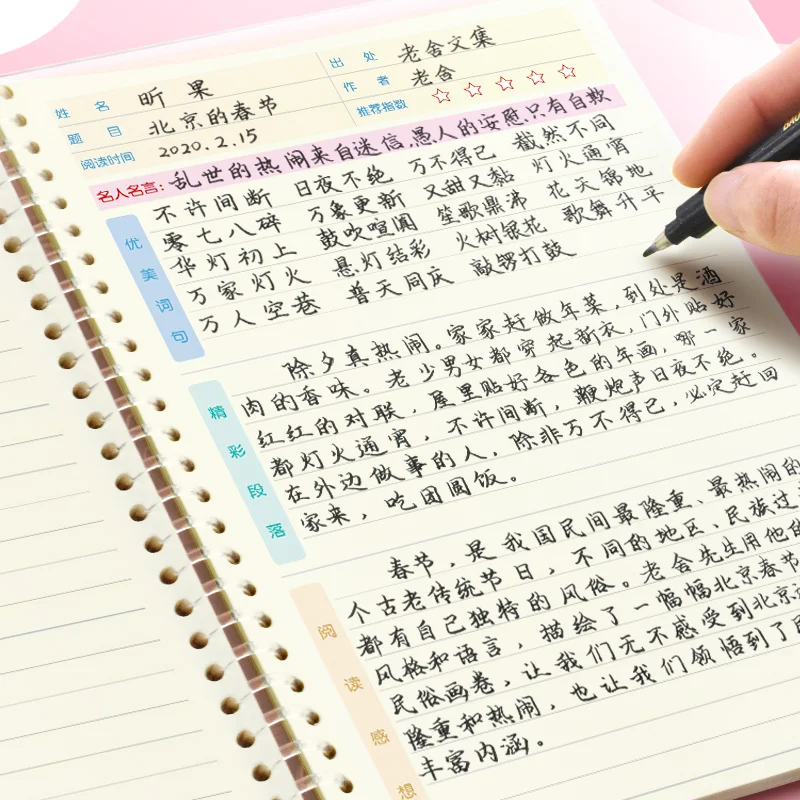 姓 名 昕 果
出 处 老舍文集
题 目 北京的春节
作 者 老舍
阅读时间 2020.2.15
推荐指数
名人名言：乱世的热闹来自迷信，愚人的安慰只有自欺
优美词句
不许间断 日夜不绝 万不得已 截然不同
零七八碎 万象更新 又甜又黏 灯火通宵
华灯初上 鼓吹喧阗 笙歌鼎沸 花天锦地
万家灯火 悬灯结彩 火树银花 歌舞升平
万人空巷 普天同庆 敲锣打鼓
精彩段落
除夕真热闹。家家赶做年菜，到处是酒
肉的香味。老少男女都穿起新衣，门外贴好
红红的对联，屋里贴好各色的年画，哪一家
都灯火通宵，不许间断，鞭炮声日夜不绝。
在外边做事的人，除非万不得已，必定赶回
家来，吃团圆饭。
阅读感想
春节，是我国民间最隆重、最热闹的
个古老传统节日，不同的地区、民族过
都有自己独特的风俗。老舍先生用他的
风格和语言，描绘了一幅幅北京春节
民俗画卷，让我们无不感受到北京
隆重和热闹，也让我们领悟到了
丰富内涵。